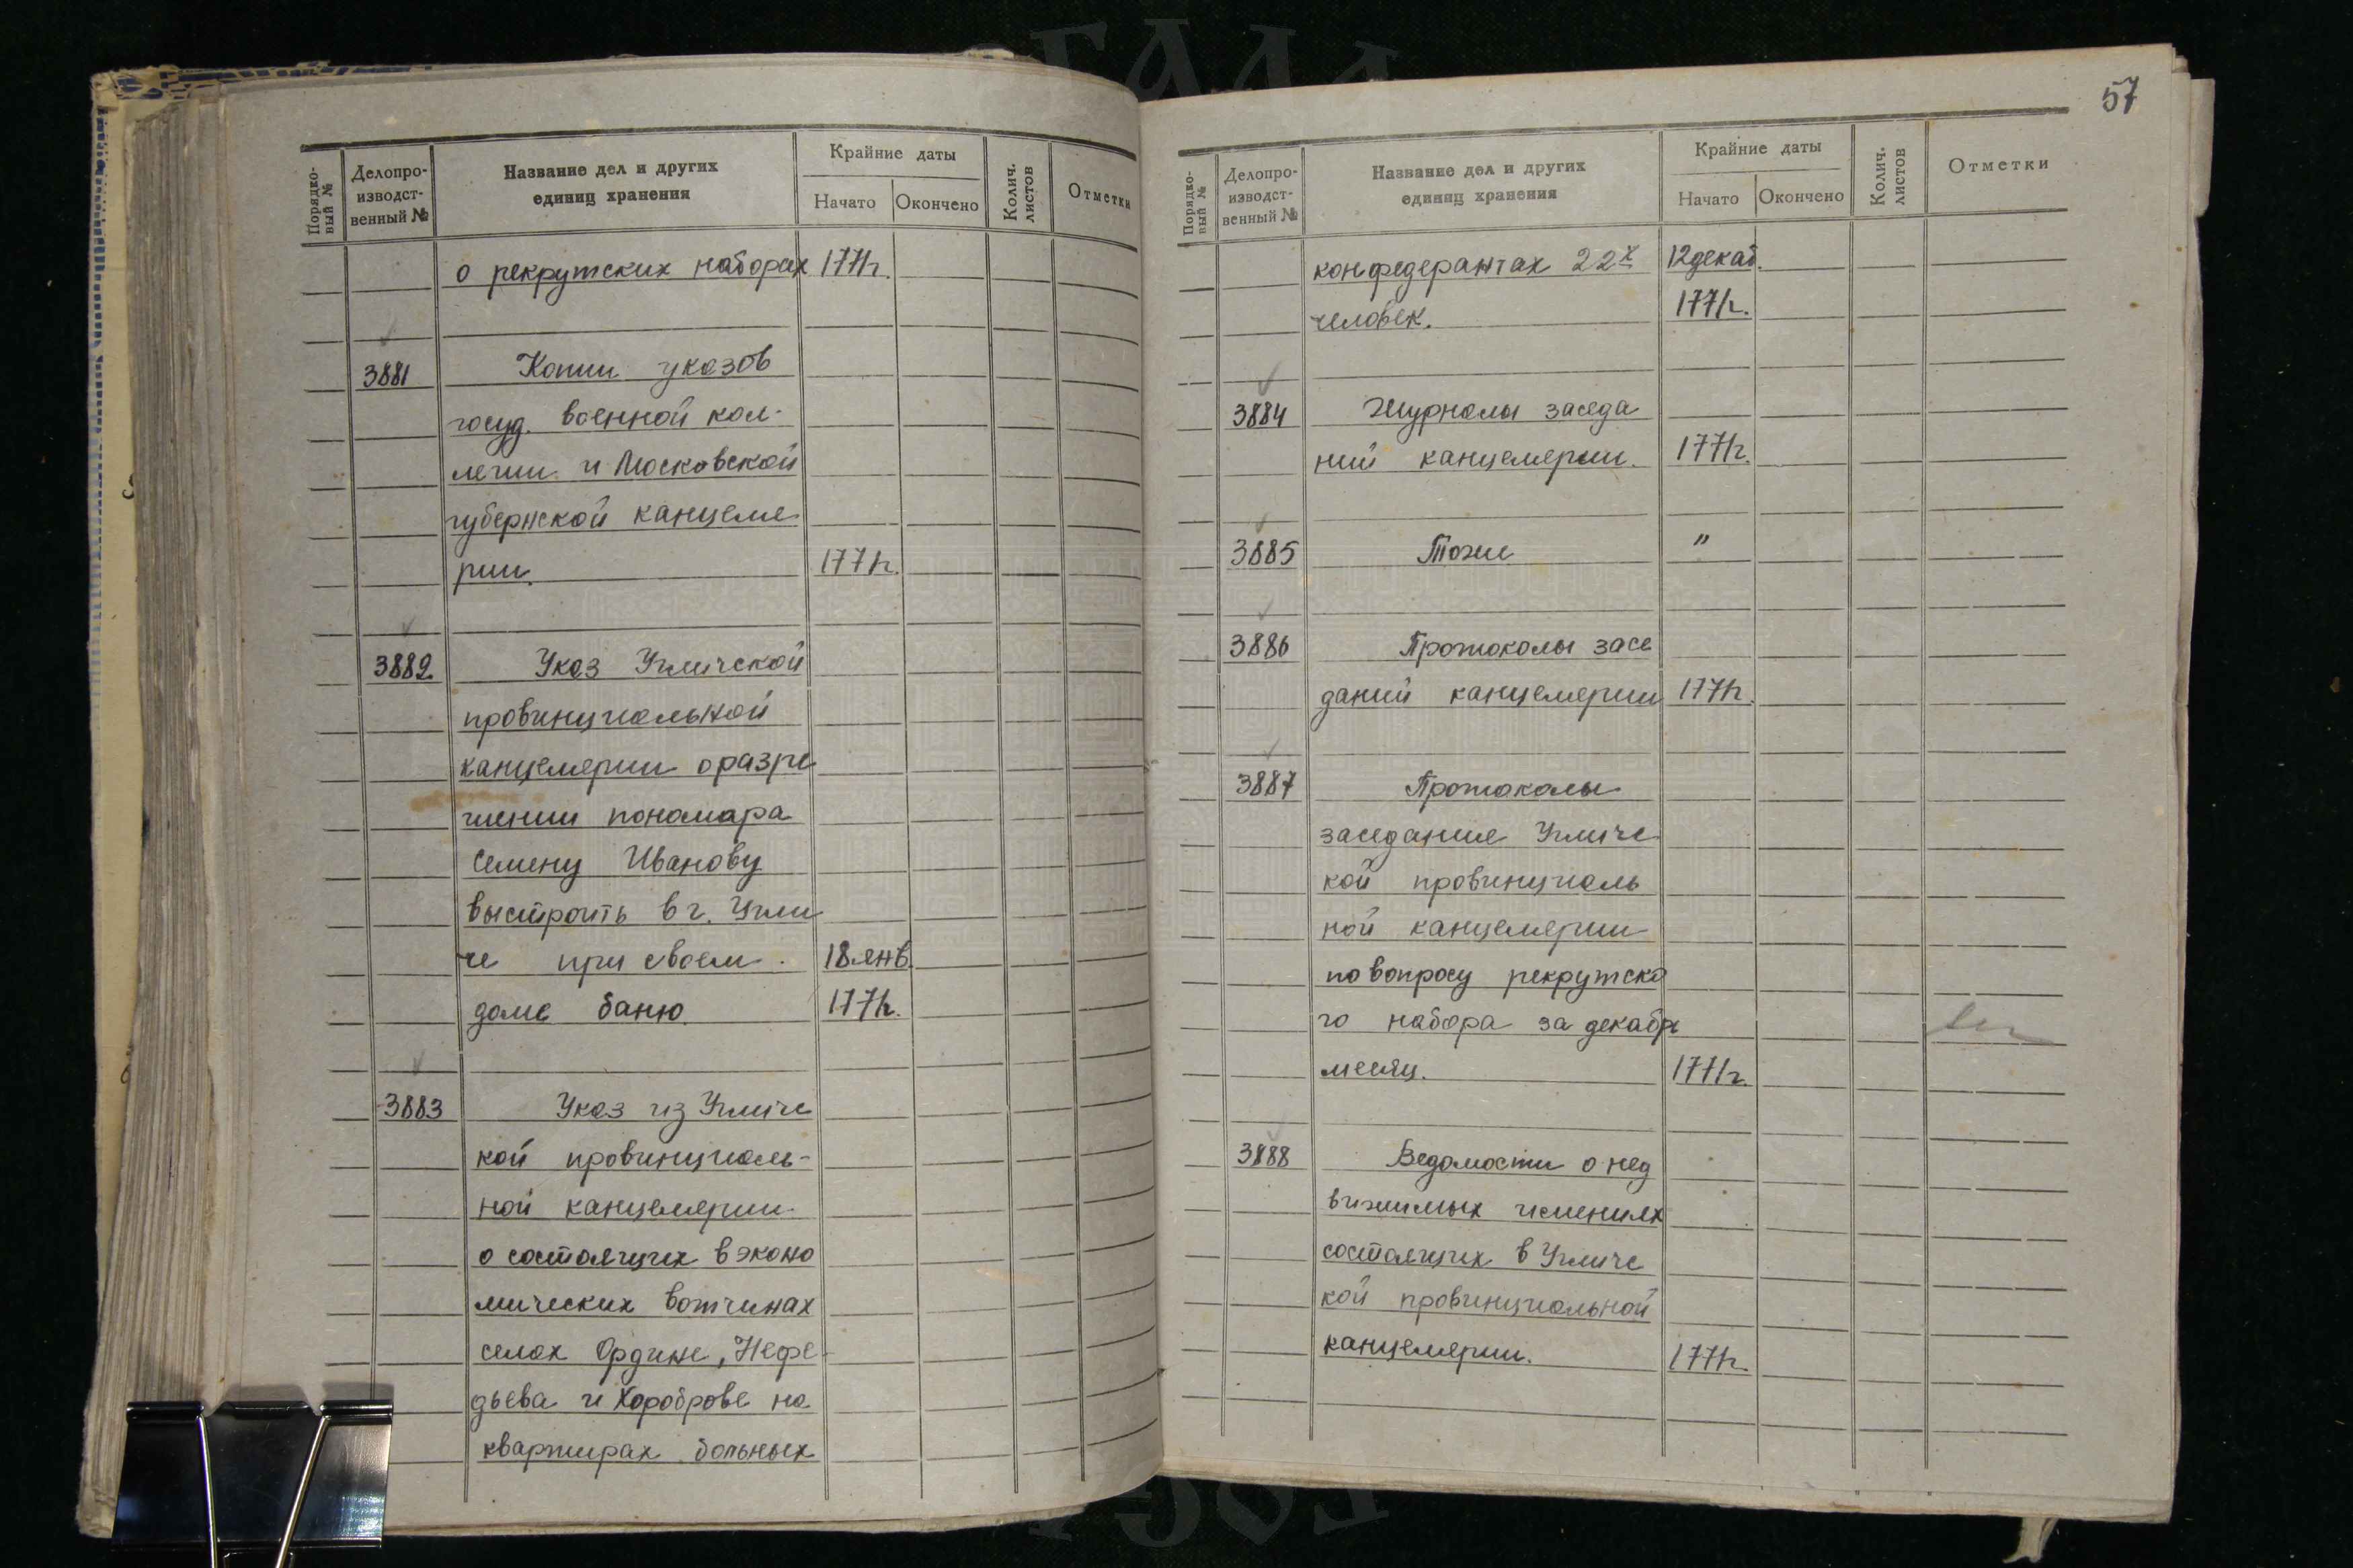 Порядко-
вый №
Делопро-
изводст-
венный №
Название дел и других
единиц хранения
Крайние даты
Начато
Окончено
Колич.
листов
Отметки
о рекрутских наборах 1771г.
3881 Копии указов
госуд. военной кол-
легии и Московской
губернской канцеля
рии. 1771г.
3882 Указ Угличской
провинциальной
канцелярии о разре
шении пономара
Семену Иванову
выстроить в г. Угли
че при своем 18 янв.
доме баню 1771г.
3883 Указ из Угличс
кой провинциаль-
ной канцелярии
о состоящих в эконо
мических вотчинах
селах Ордине, Нефе
дьева и Хороброве на
квартирах больных
57
Порядко-
вый №
Делопро-
изводст-
венный №
Название дел и других
единиц хранения
Крайние даты
Начато
Окончено
Колич.
листов
Отметки
конфедерантах 22х 12 декаб.
человек. 1771г.
3884 Журналы заседа
ний канцелярии. 1771г.
3885 Тоже "
3886 Протоколы засе
даний канцелярии 1771г.
3887 Протоколы
заседание Угличс
кой провинциаль
ной канцелярии
по вопросу рекрутско
го набора за декабрь
месяц. 1771г.
3888 Ведомости о нед
вижимых имениях
состоящих в Угличс
кой провинциальной
канцелярии. 1771г.